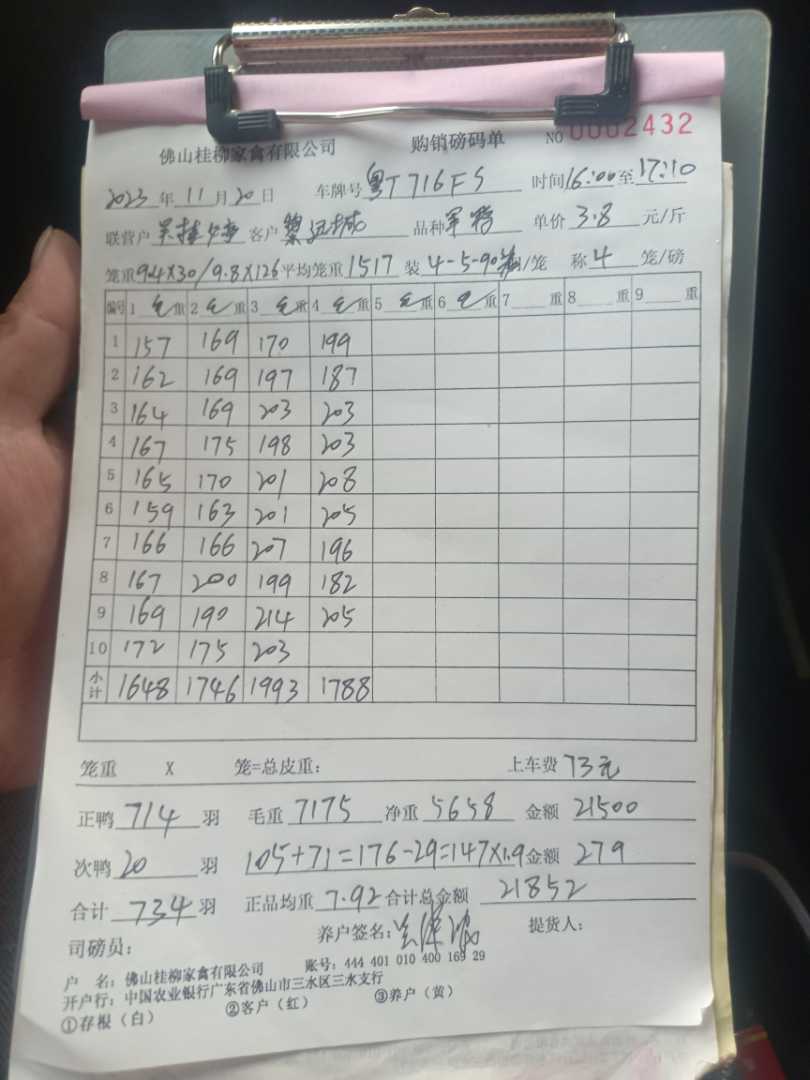 佛山桂柳家禽有限公司 购销磅码单 NO 0002432
2023年11月20日 车牌号 粤T716FS 时间16:00至17:10
联营户 客户 品种 单价 3.8 元/斤
笼重9.4X30/9.8X126平均笼重1517 装4-5-90 /笼 称4笼/磅
编号 1 毛重 2 毛重 3 毛重 4 毛重 5 毛重 6 毛重 7 重 8 重 9 重
1 157 169 170 199
2 162 169 197 187
3 164 169 203 203
4 167 175 198 203
5 165 170 201 208
6 159 163 201 205
7 166 166 207 196
8 167 200 199 182
9 169 190 214 205
10 172 175 203
小计 1648 1746 1993 1788
笼重 X 笼=总皮重: 上车费 73元
正鸭 714 羽 毛重 7175 净重 5658 金额 21500
次鸭 20 羽 105+71=176-29=147X1.9 金额 279
合计 734 羽 正品均重 7.92 合计总金额 21852
司磅员: 养户签名: 提货人:
户 名: 佛山桂柳家禽有限公司 账号: 444 401 010 400 169 29
开户行: 中国农业银行广东省佛山市三水区三水支行
①存根（白） ②客户（红） ③养户（黄）